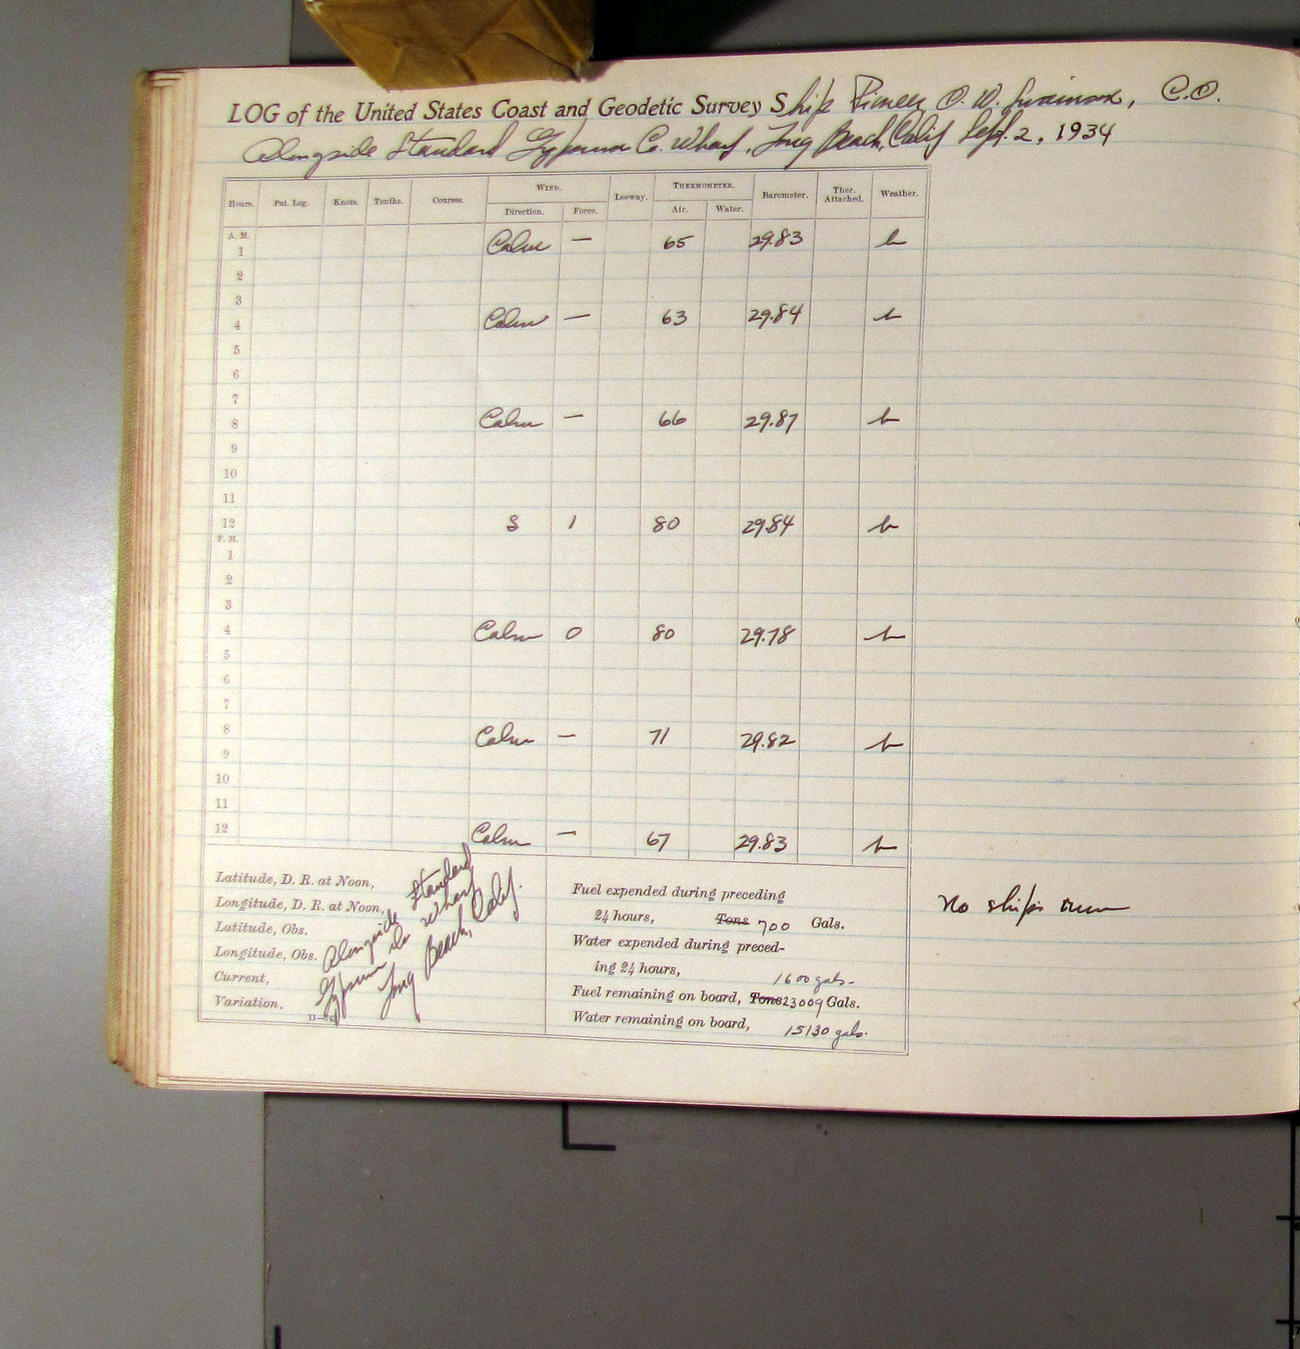 LOG of the United States Coast and Geodetic Survey Ship Pioneer O. W. Swainson, C.O.
Alongside Standard Gypsum Co. Wharf, Long Beach, Calif Sept. 2, 1934
WIND. THERMOMETER.
Hours. Pat. Log. Knots. Tenths. Courses. Direction. Force. Leeway. Air. Water. Barometer. Ther. Attached. Weather.
A. M.
1 Calm — 65 29.83 b
2
3
4 Calm — 63 29.84 b
5
6
7
8 Calm — 66 29.87 b
9
10
11
12 S 1 80 29.84 b
P. M.
1
2
3
4 Calm 0 80 29.78 b
5
6
7
8 Calm — 71 29.82 b
9
10
11
12 Calm — 67 29.83 b
Latitude, D. R. at Noon,
Longitude, D. R. at Noon,
Latitude, Obs.
Longitude, Obs.
Current,
Variation.
Alongside Standard
Gypsum Co Wharf
Long Beach, Calif.
Fuel expended during preceding
24 hours, Tons 700 Gals.
Water expended during preced-
ing 24 hours, 1600 gals.
Fuel remaining on board, Tons 23009 Gals.
Water remaining on board, 15130 gals.
No ship's run